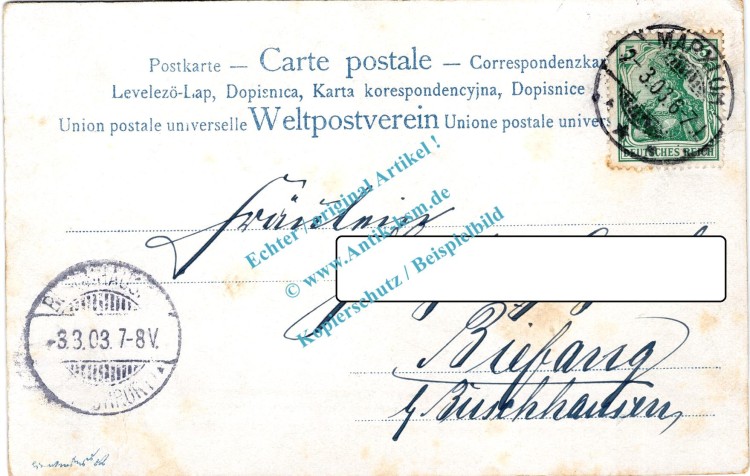 Postkarte — Carte postale — Correspondenzka
Levelezö-Lap, Dopisnica, Karta korespondencyjna, Dopisnice
Union postale universelle Weltpostverein Unione postale univers
DEUTSCHES REICH
3.03.6-7
Fräulein
Echter / original Artikel !
© www.Antik-hsm.de
Kopierschutz / Beispielbild
3.3.03. 7-8V.
Biefang
b/ Buschhausen